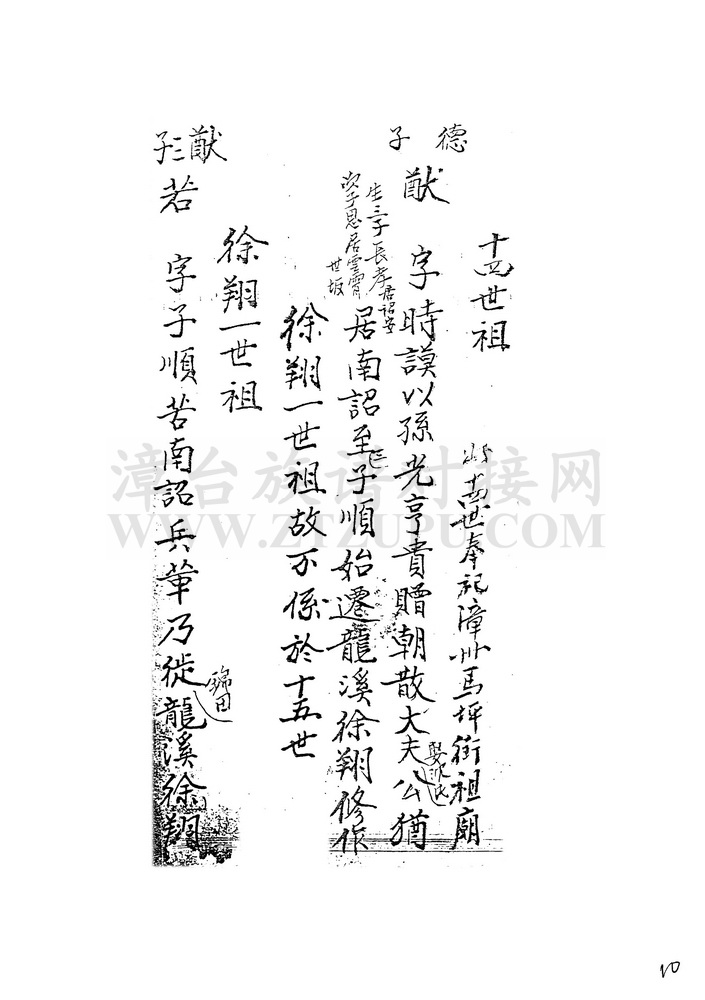 十四世祖
此高世奉祀漳州馬坪街祖廟
德子
猷 字時謨以孫光亨貴贈朝散大夫公猶
娶沈氏
生三子長孝居詔安
次子思居雲霄
世坂
居南詔至子順始遷龍溪徐翔修作
三
徐翔一世祖故不係於十五世
徐翔一世祖
猷三子
若 字子順苦南詔兵革乃徙龍溪徐翔
錦田
漳台族谱对接网
WWW.ZTZUPU.COM
10